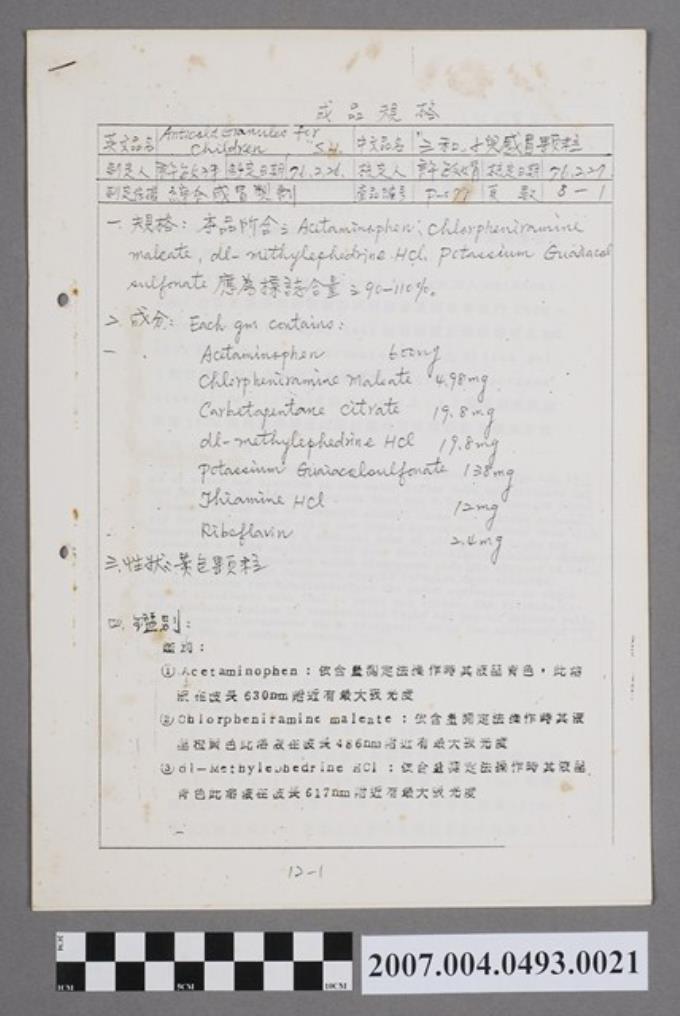 成品規格
英文品名 Anticold Granules for Children "S.H. 中文品名 "三和"小兒感冒顆粒
制定人 制定日期 76.2.26. 核定人 核定日期 76.2.27.
制定依據 綜合感冒製劑 產品編號 頁數 8-1
一. 規格: 本品所含之 Acetaminophen, Chlorpheniramine
maleate, dl-methylephedrine HCl. Potassium Guaiacol
sulfonate 應為標誌含量之90-110%。
二 成分: Each gm contains:
Acetaminophen 600mg
Chlorpheniramine maleate 4.98mg
Carbetapentane citrate 19.8mg
dl-methylephedrine HCl 19.8mg
Potassium Guaiacolsulfonate 138mg
Thiamine HCl 12mg
Riboflavin 2.4mg
三. 性狀: 黃色顆粒
四. 鑑別:
鑑別:
① Acetaminophen : 依含量測定法操作時其液呈青色,此溶
液在波長630nm附近有最大吸光度
② Chlorpheniramine maleate : 依含量測定法操作時其液
呈橙黃色此溶液在波長486nm附近有最大吸光度
③ dl-Methylephedrine HCl : 依含量測定法操作時其液呈
青色此溶液在波長617nm附近有最大吸光度
12-1
1CM 5CM 10CM
2007.004.0493.0021